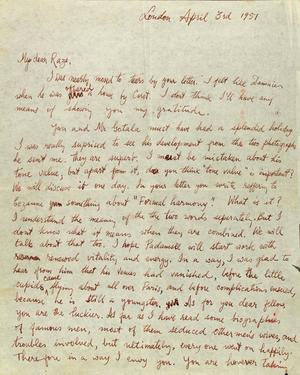 London, April 3rd 1951
My dear Raza,
I was nearly moved to tears by your letter. I feel like Daumier
when he was offered a home by Corot. I don't think I'll have any
means of showing you my gratitude.
You and Mr Gotala must have had a splendid holiday.
I was really suprised to see his development from the two photographs
he sent me. they are superb. I must be mistaken about his
tone value, but apart from it, do you think tone value is important?
We will discuss it one day. In your letter you write refering to
Cezanne something about "Formal harmony". What is it?
I understand the meaning of the the two words seperately. But I
don't know what it means when they are combined. We will
talk about that too. I hope Padamsee will start work with
renewed vitality and energy. In a way, I was glad to
hear from him that his Venus had vanished, before the little
cupids came flying about all over Paris, and before complications ensued,
because he is still a youngster. As for you dear fellow
you are the luckier. As far as I have read some biographies
of famous men, most of them seduced other men's wives, and
troubles involved, but ultimately, every one went on happily.
Therefore in a way I envy you. You are however taking